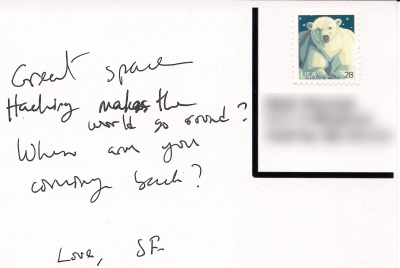 Great space
Hacking makes the
world go round?
When are you
coming back?
Love, SF
USA 28